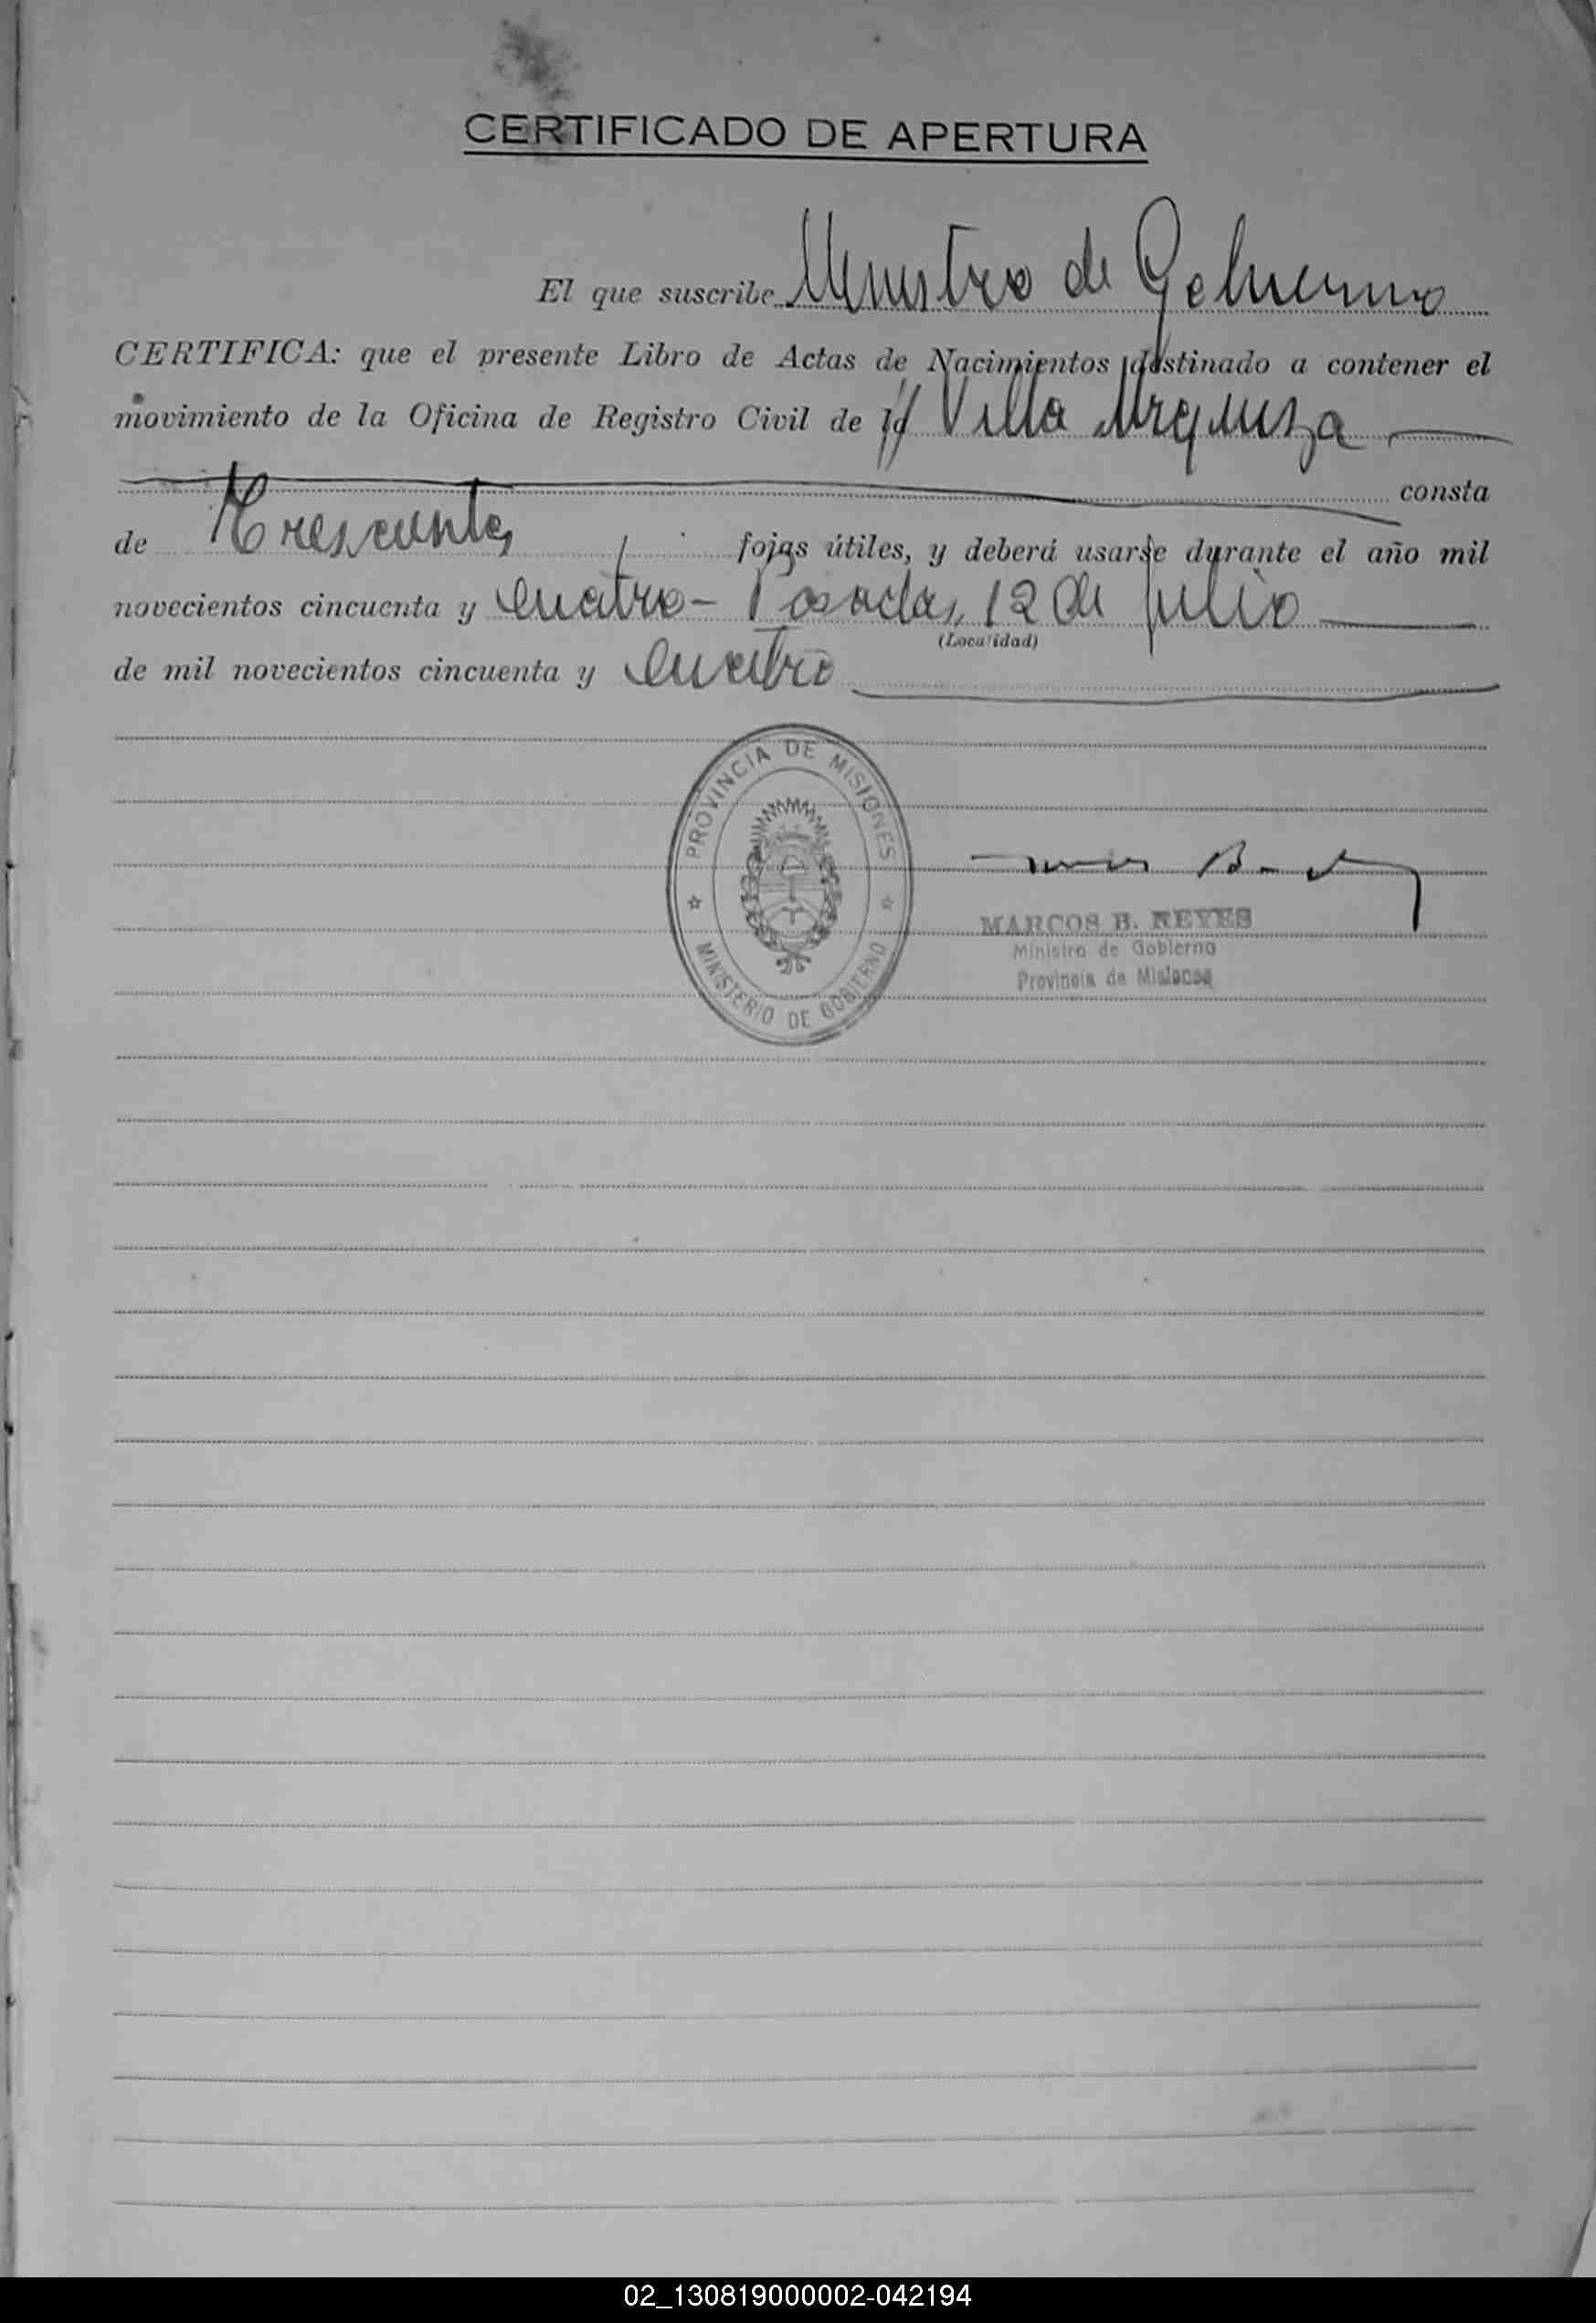 CERTIFICADO DE APERTURA
El que suscribe Ministro de Gobierno
CERTIFICA: que el presente Libro de Actas de Nacimientos destinado a contener el
movimiento de la Oficina de Registro Civil de Villa Urquiza
consta
de Trescientas fojas útiles, y deberá usarse durante el año mil
novecientos cincuenta y cuatro - Posadas, 12 de julio
(Localidad)
de mil novecientos cincuenta y cuatro
PROVINCIA DE MISIONES
MINISTERIO DE GOBIERNO
MARCOS B. REYES
Ministro de Gobierno
Provincia de Misiones
02_130819000002-042194